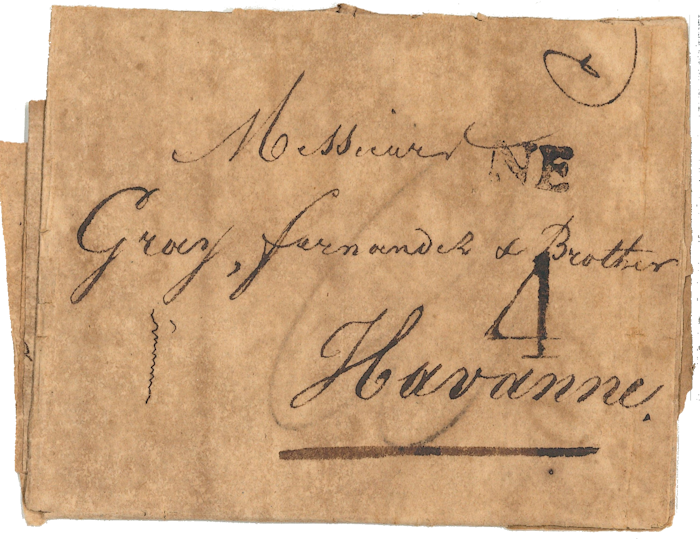 Messieurs NE
Gray, Fernandez & Brother
4
Havanne.